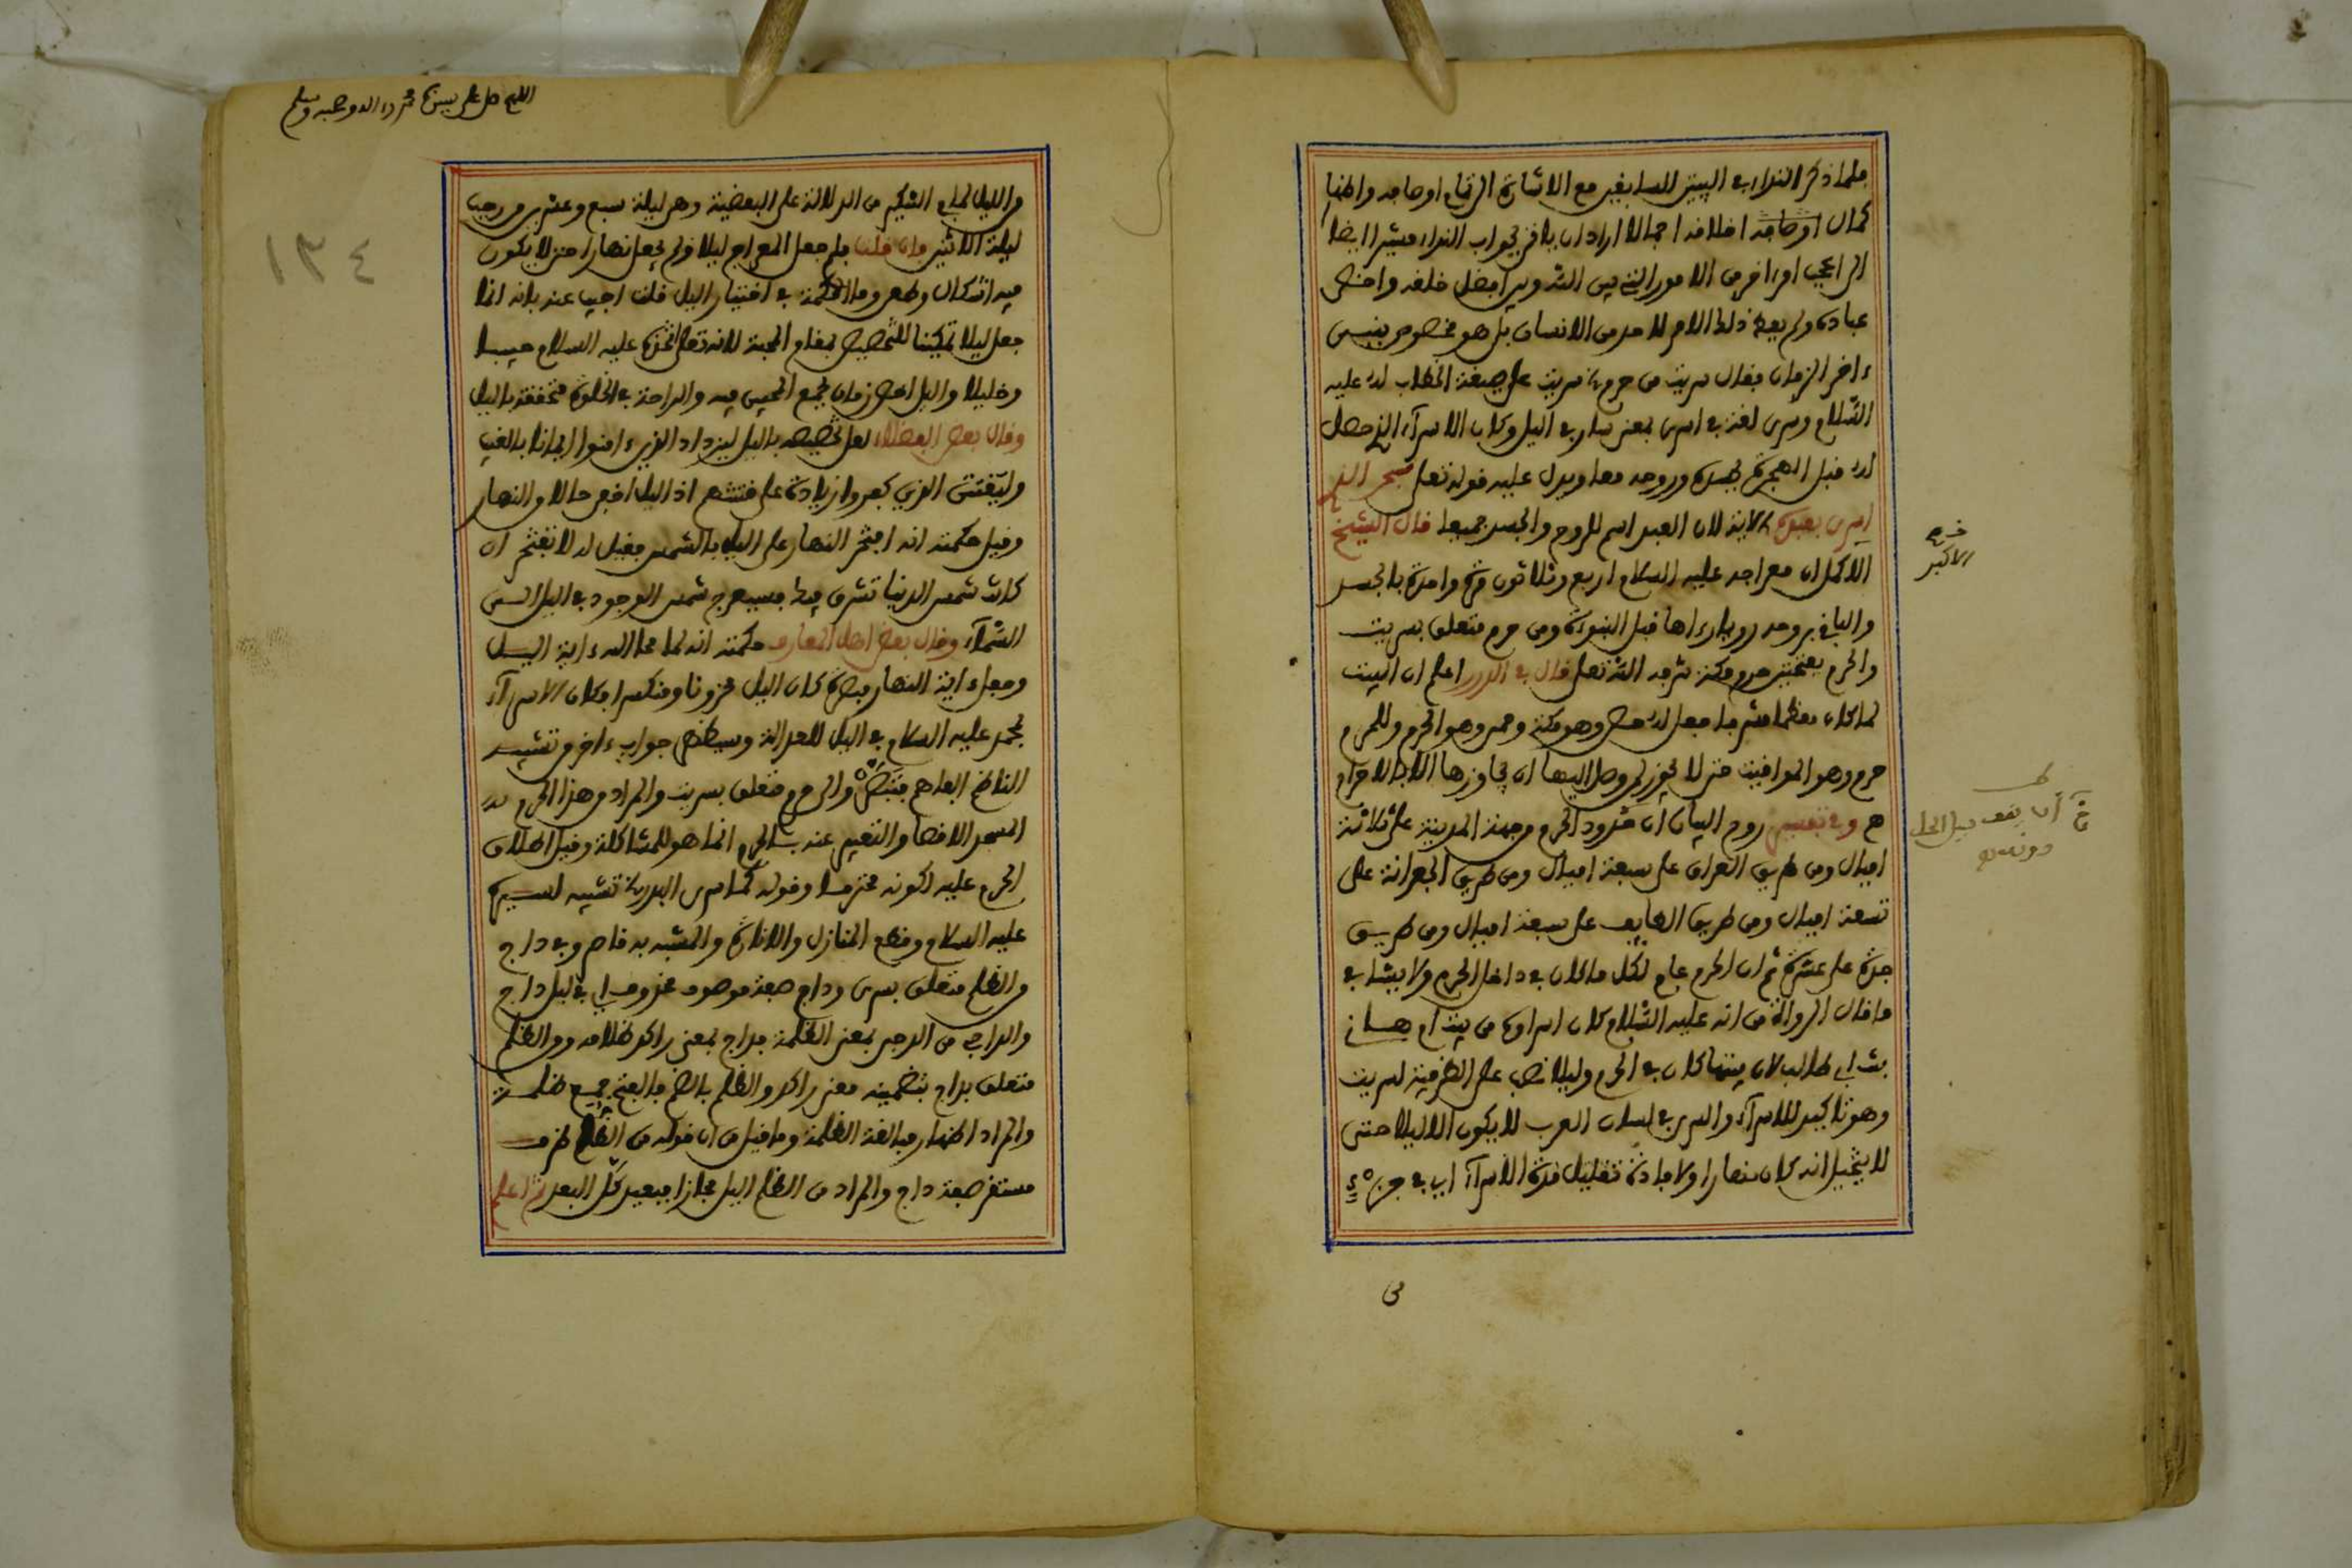 فلما ذكر النداء في البيتين السابقين مع الاشارة الى اوصافه واظهار
كمال اوصافه اخلاقه اجمالا اراد ان ياتي بجواب النداء مشيرا ايضا
الى اعجب امر اخر من الامور التي بين الله وبين افضل خلقه واخص
عباده ولم يعط ذلك الامر لاحد من الانسان بل هو مخصوص بنبي
ءاخر الزمان فقال سريت من حرم سريت على صيغة الخطاب له عليه
السّلام وسرى لغة في اسرى بمعنى سار في اليل وكان الاسرآء الذي حصل
له قبل الهجرة بجسده وروحه معا ويدل عليه قوله تعلى سبحن الذي
اسرى بعبده الاية لان العبد اسم للروح والجسد جميعا قال الشيخ
الاكبر
الاكمل ان معراجه عليه السلام اربع وثلاثون مرة واحدة بالجسد
والباقي بروحه رويا رءاها قبل النبوءة ومن حرم متعلق بسريت
والحرم بفتحتين حرم مكة شرفه الله تعلى قال في الدرر اعلم ان البيت
لما كان معظما مشرفا جعل له حصن وهو مكة وحمى وهو الحرم وللحرم
حرم وهو المواقيت حتى لا يجوز لمن وصل اليها ان يجاوزها الا بالاحرام
وفي تفسير روح البيان ان حدود الحرم من جهة المدينة على ثلاثة
اميال ومن طريق العراق على سبعة اميال ومن طريق الجعرانة على
تسعة اميال ومن طريق الطايف على سبعة اميال ومن طريق
جدة على عشرة ثم ان الحرم عام لكل ما كان في داخل الحرم ولا ينافي
ما قال الرواة من انه عليه السّلام كان اسراوه من بيت ام هاني
بنت ابي طالب لان بيتها كان في الحرم وليلا نصب على الظرفية لسريت
وهو تاكيد للاسرآء والسرى في لسان العرب لا يكون الا ليلا حتى
لا يتخيل انه كان نهارا ولافادة تقليل مدة الاسرآء اي في جزء
من
اللهم صل على سيدنا محمد وءاله وصحبه وسلم
١٣٤
من الليل لما في التنكير من الدلالة على البعضية وهي ليلة سبع وعشرين من رجب
ليلة الاثنين فان قلت فلم جعل المعراج ليلا ولم يجعل نهارا حتى لا يكون
فيه اشكال وطعن وما الحكمة في اختيار اليل قلت اجيب عنه بانه انما
جعل ليلا تمكينا للتخصيص بمقام المحبة لانه تعلى اتخذه عليه السلام حبيبا
وخليلا واليل اخص زمان لجمع المحبين فيه والراحة في الخلوة متحققة باليل
وقال بعض الفضلاء لعل تخصيصه باليل ليزداد الذين ءامنوا ايمانا بالغيب
وليفتتن الذين كفروا زيادة على فتنتهم اذ اليل اخفى حالا من النهار
وقيل حكمته انه افتخر النهار على اليل بالشمس فقيل له لا تفتخر ان
كانت شمس الدنيا تشرق فيك فسيعرج شمس الوجود في اليل الى
السّمآء وقال بعض اهل المعارف حكمته انه لما محا الله ءاية اليل
وجعل ءاية النهار مبصرة كان اليل محزونا ومنكسرا فكان الاسرآء
بمحمد عليه السلام في اليل للعدالة وسيظهر جواب ءاخر من تشبيه
الناظم الفاهم فتبصّر والى حرم متعلق بسريت والمراد من هذا الحرم
المسجد الاقصا والتعبير عنه بالحرم انما هو للمشاكلة وقيل اطلاق
الحرم عليه لكونه محترما وقوله كما سرى البدر تشبيه لسيره
عليه السلام وقطع المنازل والانارة والمشبه به قاصر وفي داج
من الظلم متعلق بسرى وداج صفة موصوف محذوف اي في ليل داج
والداجي من الدجى بمعنى الظلمة فداج بمعنى راكد ظلامه ومن الظلم
متعلق بداج بتضمينه معنى راكد والظلم بالضم فالفتح جمع ظلمة
والمراد اظهار مبالغة الظلمة وما قيل من ان قوله من الظلم ظرف
مستقر صفة داج والمراد من الظلم اليل مجازا فبعيد كل البعد ثم اعلم